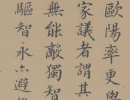 歐陽率更與
家議者謂其
無能敵獨智
驅智永亦避